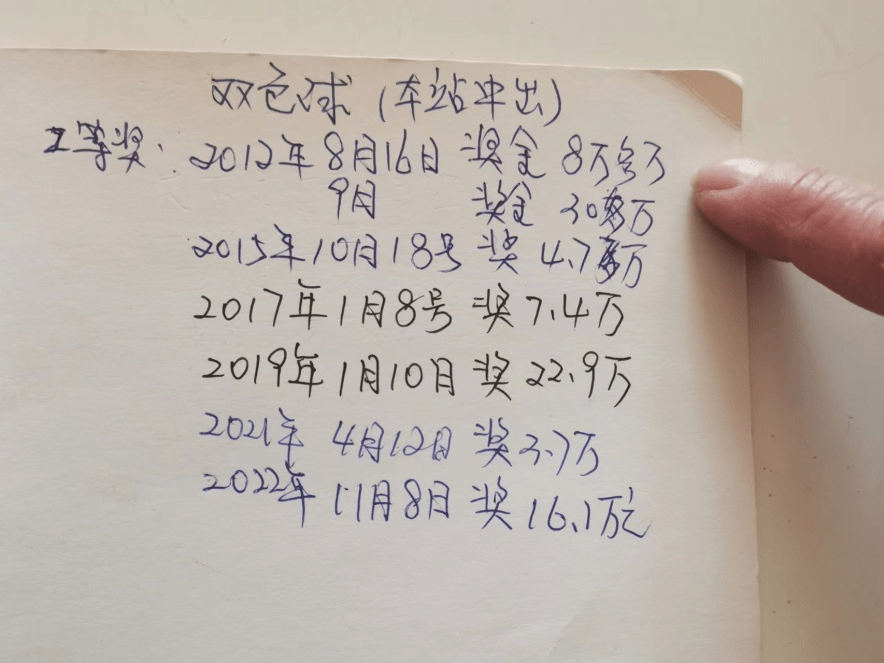 双色球(本站中出)
二等奖: 2012年8月16日 奖金 8万多
9月 奖金 30多万
2015年10月18号 奖 4.7万
2017年1月8号 奖7.4万
2019年1月10日 奖22.9万
2021年 4月12日 奖3.7万
2022年 11月8日 奖16.1万元